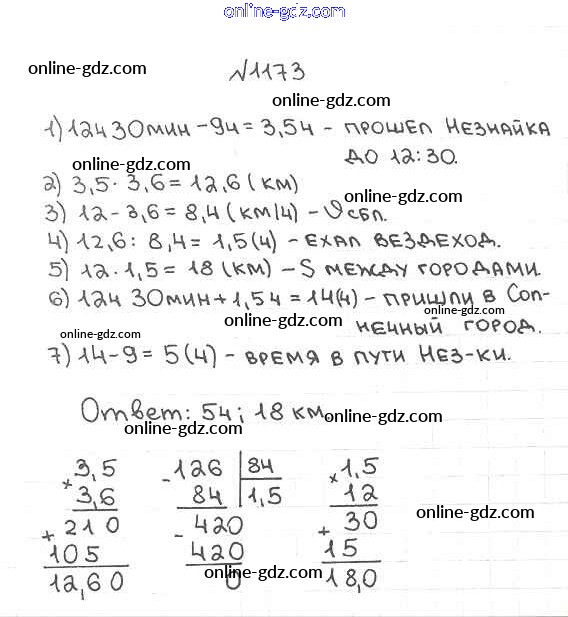 online-gdz.com
online-gdz.com
№1173
online-gdz.com
1) 12ч 30мин - 9ч = 3,5ч - прошел Незнайка
до 12:30.
online-gdz.com
2) 3,5 · 3,6 = 12,6 (км)
online-gdz.com
3) 12 - 3,6 = 8,4 (км/ч) - υ сбл.
4) 12,6 : 8,4 = 1,5 (ч) - ехал вездеход.
5) 12 · 1,5 = 18 (км) - S между городами.
6) 12ч 30мин + 1,5ч = 14 (ч) - пришли в Сол-
нечный город.
online-gdz.com
online-gdz.com
online-gdz.com
7) 14 - 9 = 5 (ч) - время в пути Нез-ки.
Ответ: 5ч; 18 км.
online-gdz.com
online-gdz.com
3,5 - 126 84 1,5
× 3,6 84 1,5 × 12
+ 210 - 420 + 30
105 420 15
12,60 0 18,0
online-gdz.com
online-gdz.com